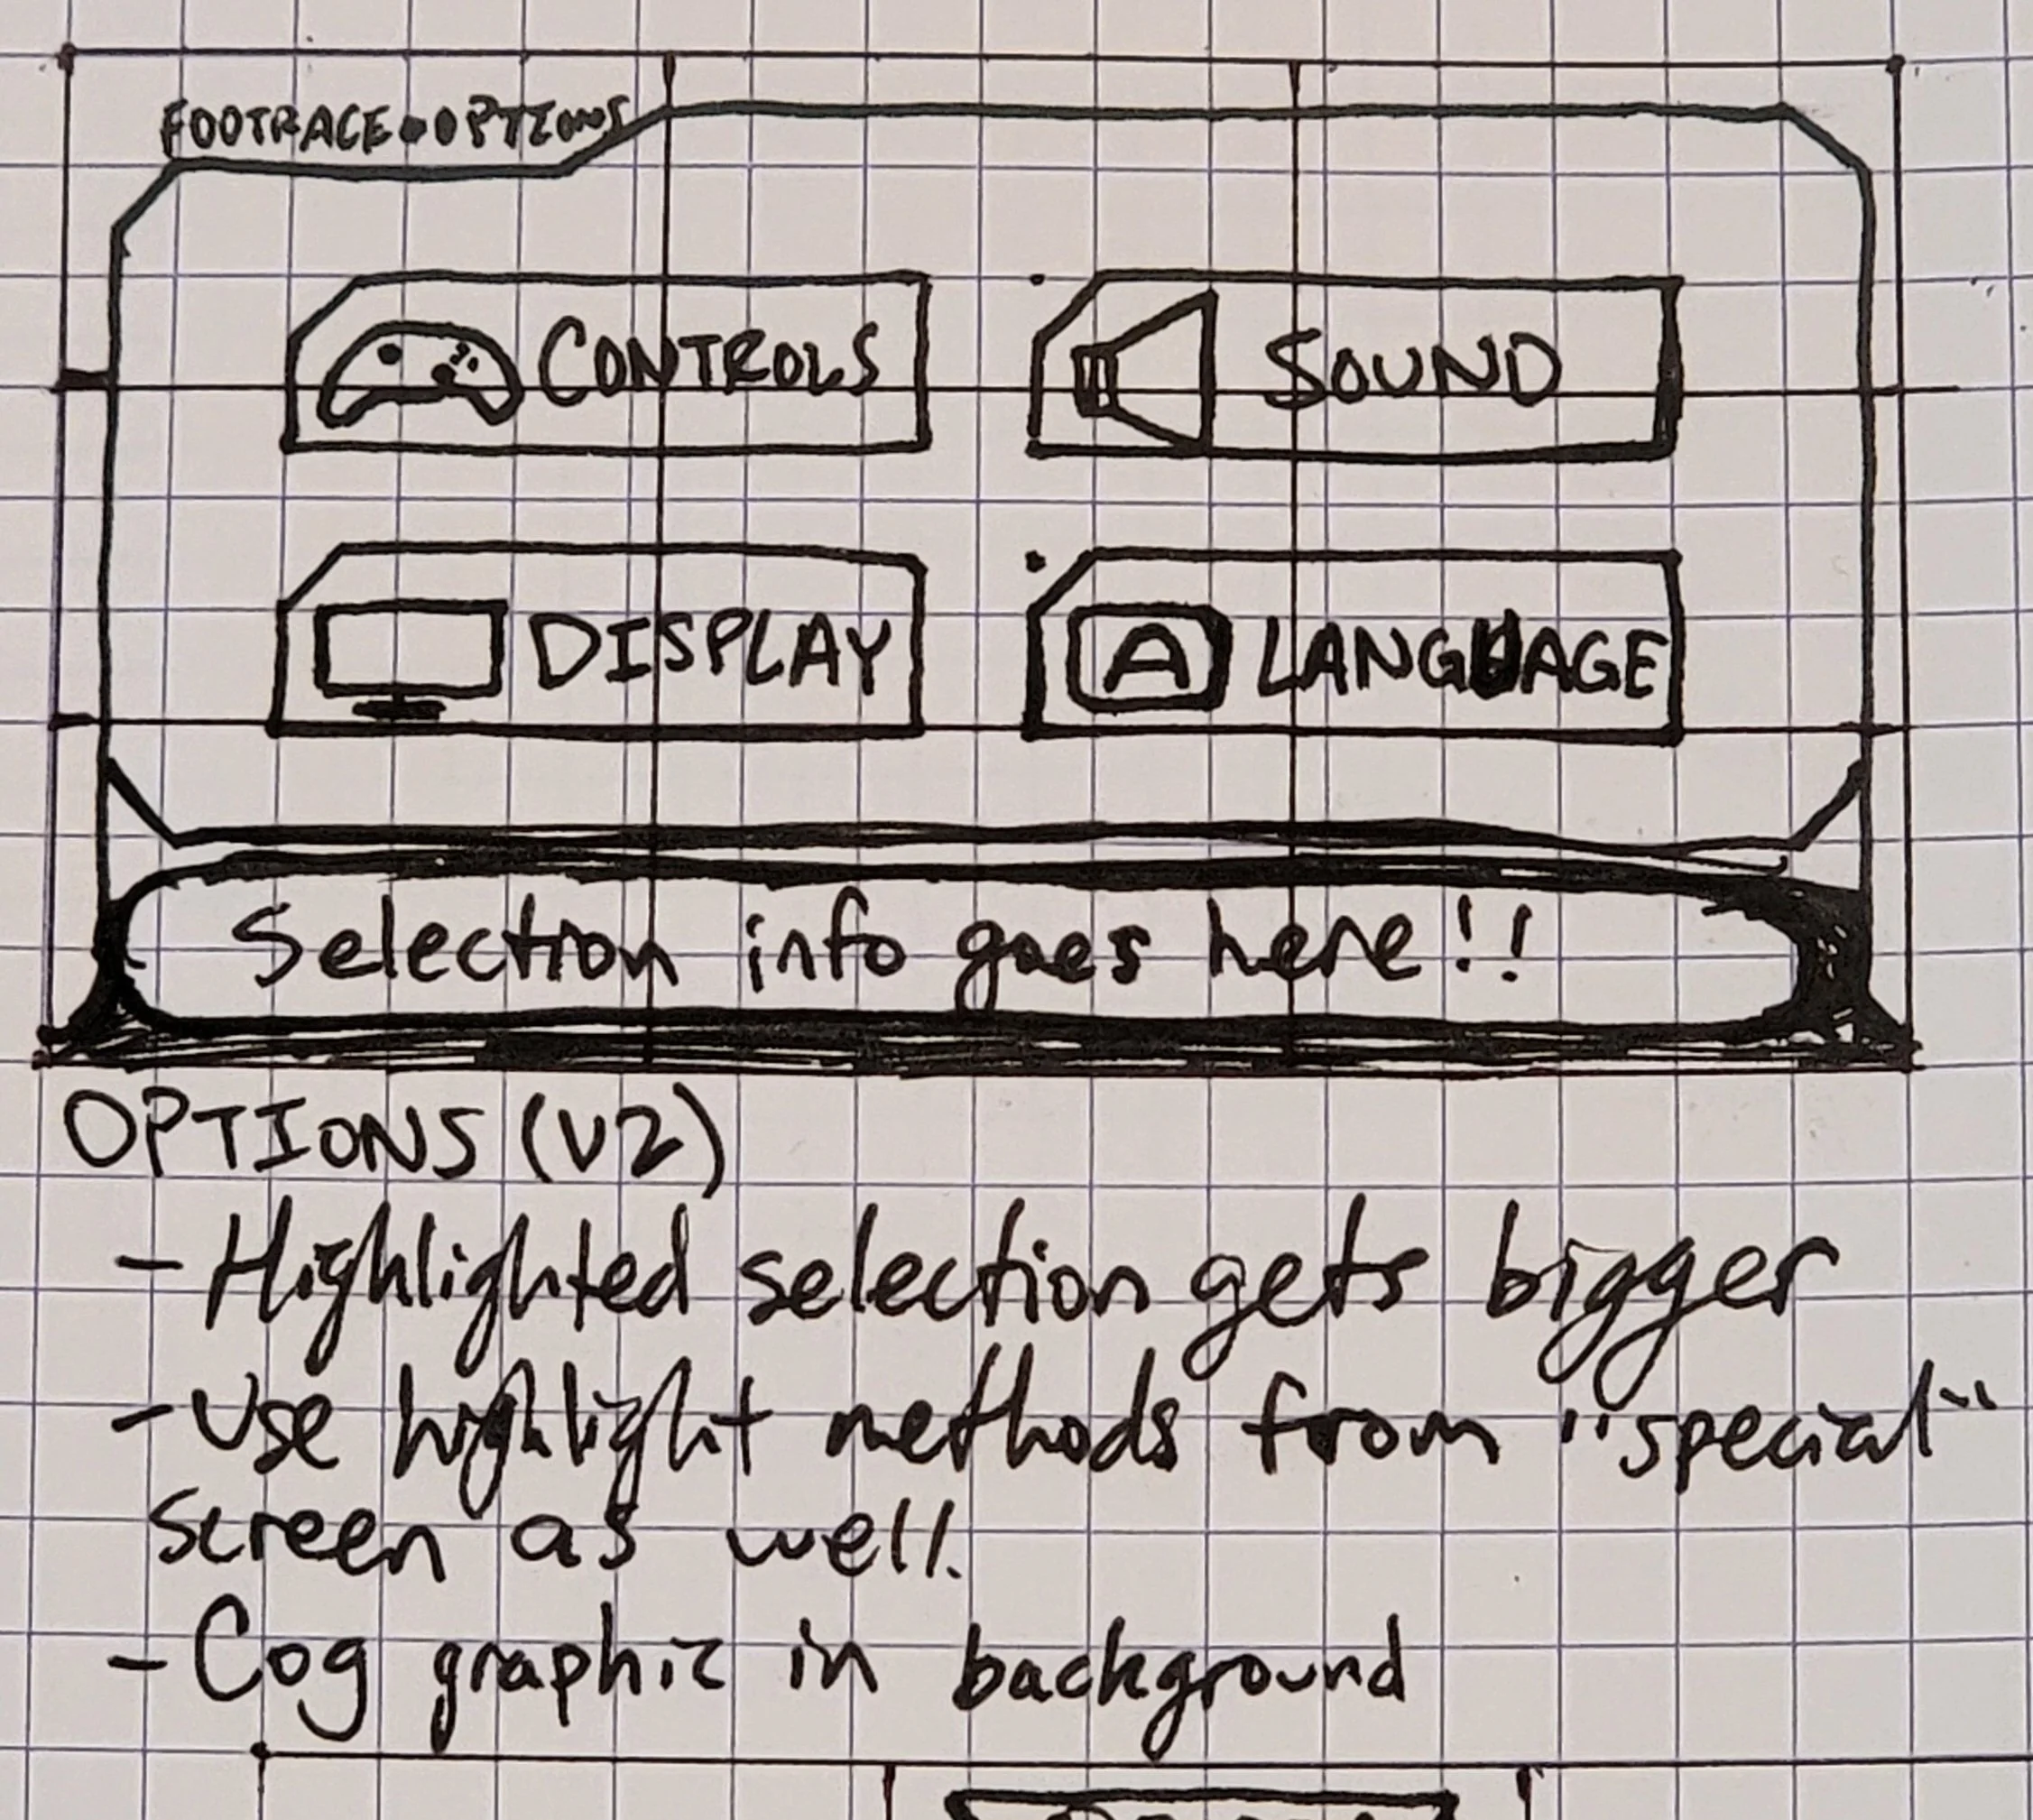 FOOTRACE•OPTIONS
CONTROLS
SOUND
DISPLAY
A LANGUAGE
Selection info goes here!!
OPTIONS (V2)
- Highlighted selection gets bigger
- Use highlight methods from "special"
screen as well.
- Cog graphic in background